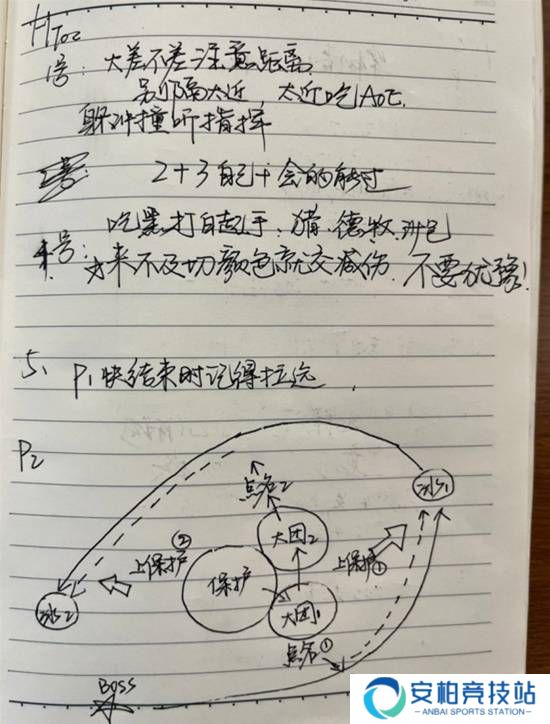 HToc
1号: 大差不差注意距离
别隔太近, 太近吃AoE.
躲冲撞听指挥
2+3自己+会的能过
吃黑打白起手、猎、德、牧
4号: 来不及切颜色就交减伤. 不要犹豫!
5、P1快结束时记得拉远
P2
点名2
冰1
大团2
上保护②
上保护①
保护
冰2
大团1
点名①
BOSS
安柏竞技站
ANBAI SPORTS STATION